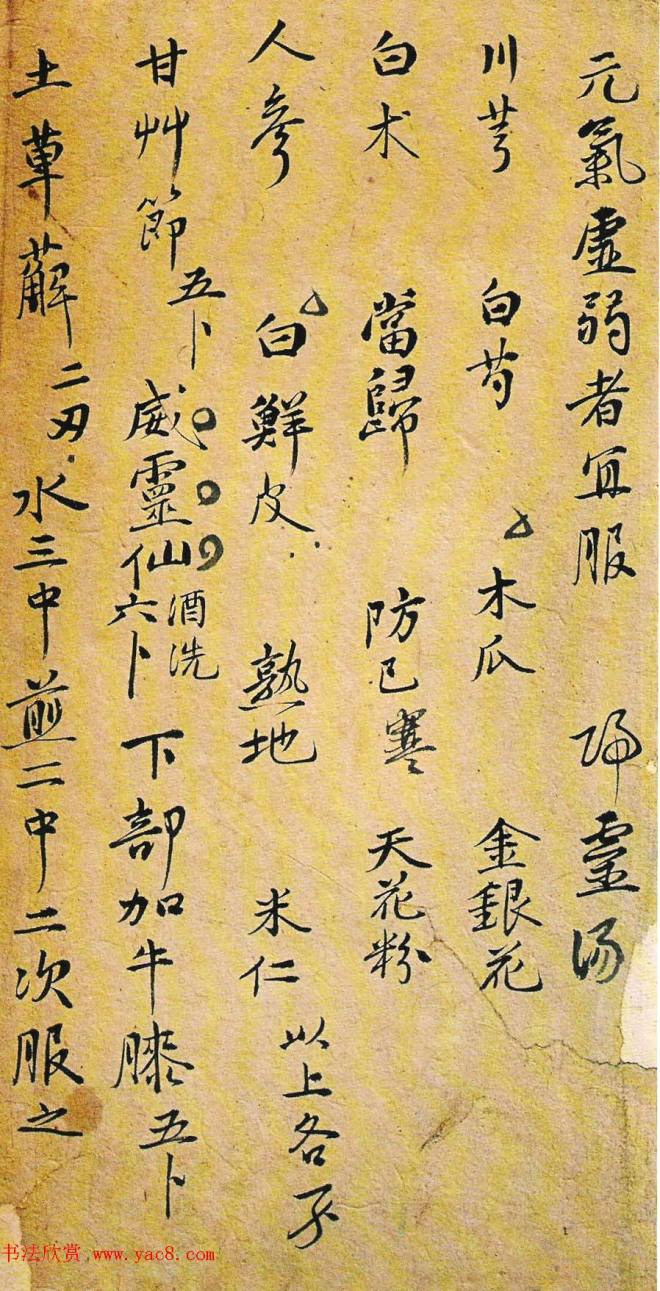 元氣虛弱者宜服 歸靈湯
川芎 白芍 木瓜 金銀花
白朮 當歸 防己 天花粉
人參 白鮮皮 熟地 米仁 以上各
甘艸節 五卜 威靈仙 酒洗 六卜 下部加牛膝 五卜
土萆薢 二刃 水三中煎二中二次服之
书法欣赏 www.yac8.com